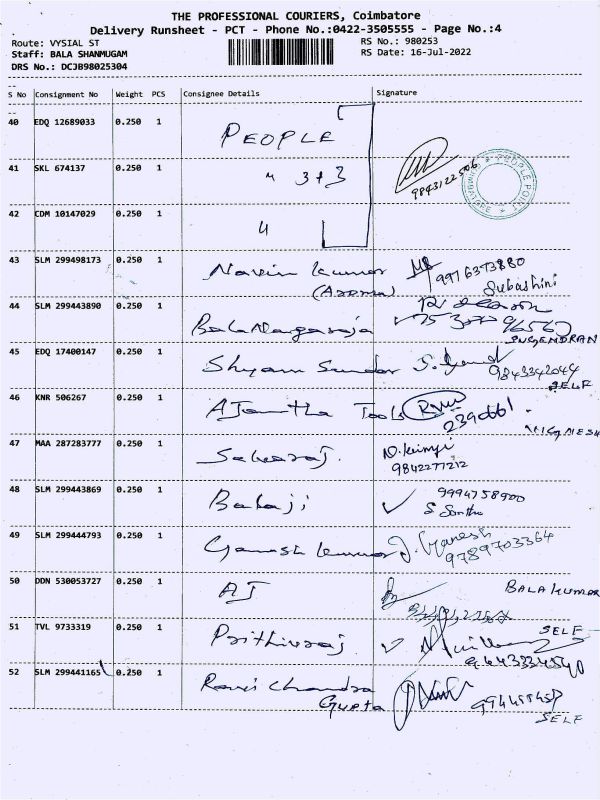 THE PROFESSIONAL COURIERS, Coimbatore
Delivery Runsheet - PCT - Phone No.:0422-3505555 - Page No.:4
Route: VYSIAL ST RS No.: 980253
Staff: BALA SHANMUGAM RS Date: 16-Jul-2022
DRS No.: DCJB98025304
S No Consignment No Weight PCS Consignee Details Signature
40 EDQ 12689033 0.250 1 PEOPLE
41 SKL 674137 0.250 1 " 3+3 9843122506
PEOPLE POINT
42 CDM 10147029 0.250 1 "
43 SLM 299498173 0.250 1 Navin kumar 9976373880
Subashini
44 SLM 299443890 0.250 1 Bala Nagaraja
SUGENDRAN
45 EDQ 17400147 0.250 1 Shyam Sundar 9843342044
SELF
46 KNR 506267 0.250 1 AJantha Tools 2390661
VIGNESH
47 MAA 287283777 0.250 1 Selvaraj.
9842277212
48 SLM 299443869 0.250 1 Balaji 9994758900
49 SLM 299444793 0.250 1 Ganesh kumar J. Ganesh
9789703364
50 DDN 530053727 0.250 1 AJ BALAKUMAR
51 TVL 9733319 0.250 1 Prithiviraj. SELF
52 SLM 299441165 0.250 1 Ravi Chandra
Gupta
SELF